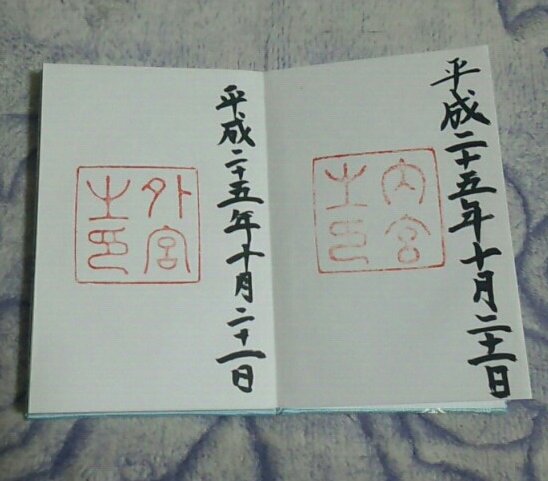 平成二十五年十月二十一日
内宮
之印
平成二十五年十月二十一日
外宮
之印